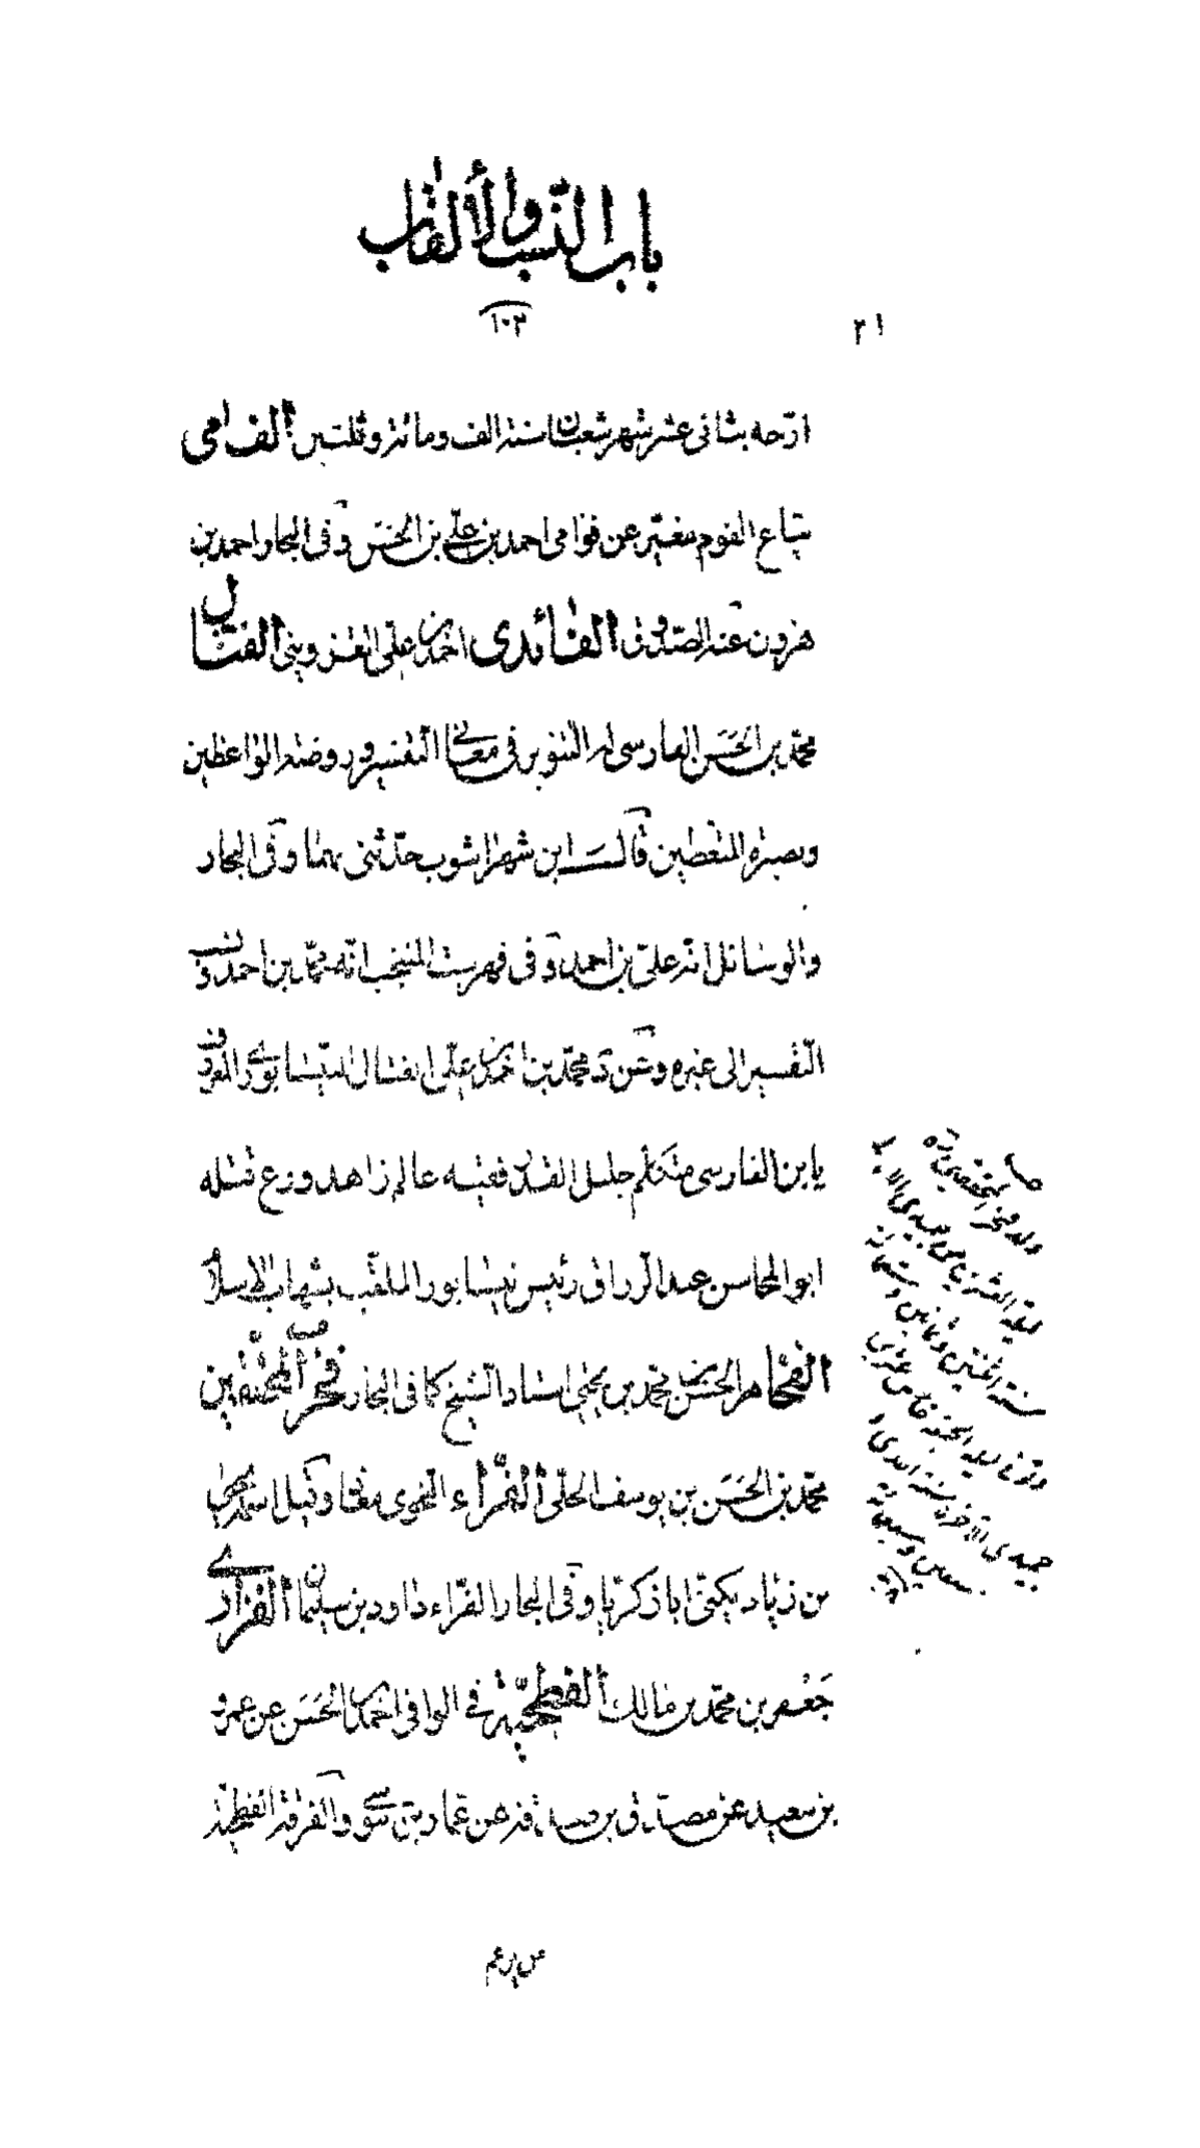 باب النسب والألقاب
١٠٣
٢١
ارّخه بثانى عشر شهر شعبان سنة الف ومائة وثلثين الفامى
بيّاع الفوم مغيّر عن فوامى احمد بن علىّ بن الحسن وفى البحار احمد بن
هرون عنه الصّدوق الفائدى احمد بن علىّ القزوينى الفتال
محمّد بن الحسن الفارسى له التنوير فى معانى التفسير وروضة الواعظين
وبصيرة المتعظين قال ابن شهراشوب حدّثنى بهما وفى البحار
والوسائل انّه علىّ بن احمد وفى فهرست المنتجب انّه محمّد بن احمد ونسب
التّفسير الى غيره وعن د محمّد بن احمد بن علىّ الفتال النيّسابورى المعروف
يا بن الفارسى متكلّم جليل القدر فقيه عالم زاهد ورع قتله
ابو المحاسن عبد الرزاق رئيس نيسابور الملقّب بشهاب الاسلام
الفحّام الحسن بن محمّد بن يحيى استاد الشيخ كما فى البحار فخر المحقّقين
محمّد بن الحسَن بن يوسف الحلّى الفرّاء النحوى معاذ وكيل اسمه يحيى
بن زياد يكنّى ابا زكريّا وفى البحار الفرّاء داود بن سليمان الفزارى
جَعفر بن محمّد بن مالك الفطحيّة فى الوافى احمد بن الحسَن عن عمرو
بن سعيد عن مصدّق بن صدقة عن عمار بن موسى والفرقة الفطحيّة